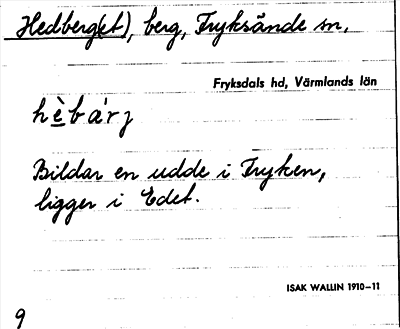 Hedberg(et), berg, Fryksände sn.
Fryksdals hd, Värmlands län
hèbárj
Bildar en udde i Fryken,
ligger i Edet.
ISAK WALLIN 1910–11
9